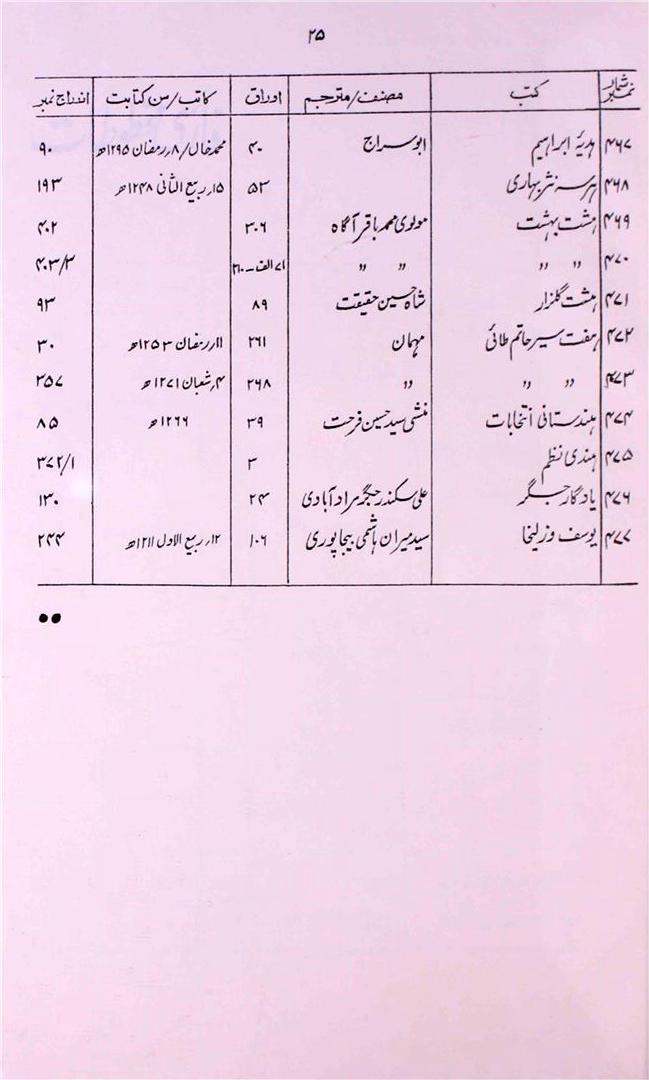 ۲۵
نمبر شمار کتب مصنف/مترجم اوراق کاتب/سن کتابت اندراج نمبر
۴۶۷ ہدیۂ ابراہیم ابوسراج ۴۰ محمد خاں/۸ر رمضان ۱۲۹۵ھ ۹۰
۴۶۸ ہر سہ نثر بہاری ۵۳ ۱۵ر ربیع الثانی ۱۲۴۸ھ ۱۹۳
۴۶۹ ہشت بہشت مولوی محمد باقر آگاہ ۳۰۶ ۴۰۲
۴۷۰ " " " " ۷۱ الف-۲۱۰ ۴۰۳/۳
۴۷۱ ہشت گلزار شاہ حسین حقیقت ۸۹ ۹۳
۴۷۲ ہفت سیر حاتم طائی مہمان ۲۶۱ ۱۱ر رمضان ۱۲۵۳ھ ۳۰
۴۷۳ " " " ۲۶۸ ۴ر شعبان ۱۲۷۱ھ ۲۵۷
۴۷۴ ہندستانی انتخابات منشی سید حسین فرحت ۳۹ ۱۲۶۶ھ ۸۵
۴۷۵ ہندی نظم ۳ ۳۷۲/۱
۴۷۶ یادگار جگر علی سکندر جگر مراد آبادی ۲۴ ۱۳۰
۴۷۷ یوسف و زلیخا سید میران ہاشمی بیجاپوری ۱۰۶ ۱۲ر ربیع الاول ۱۲۱۱ھ ۲۴۴